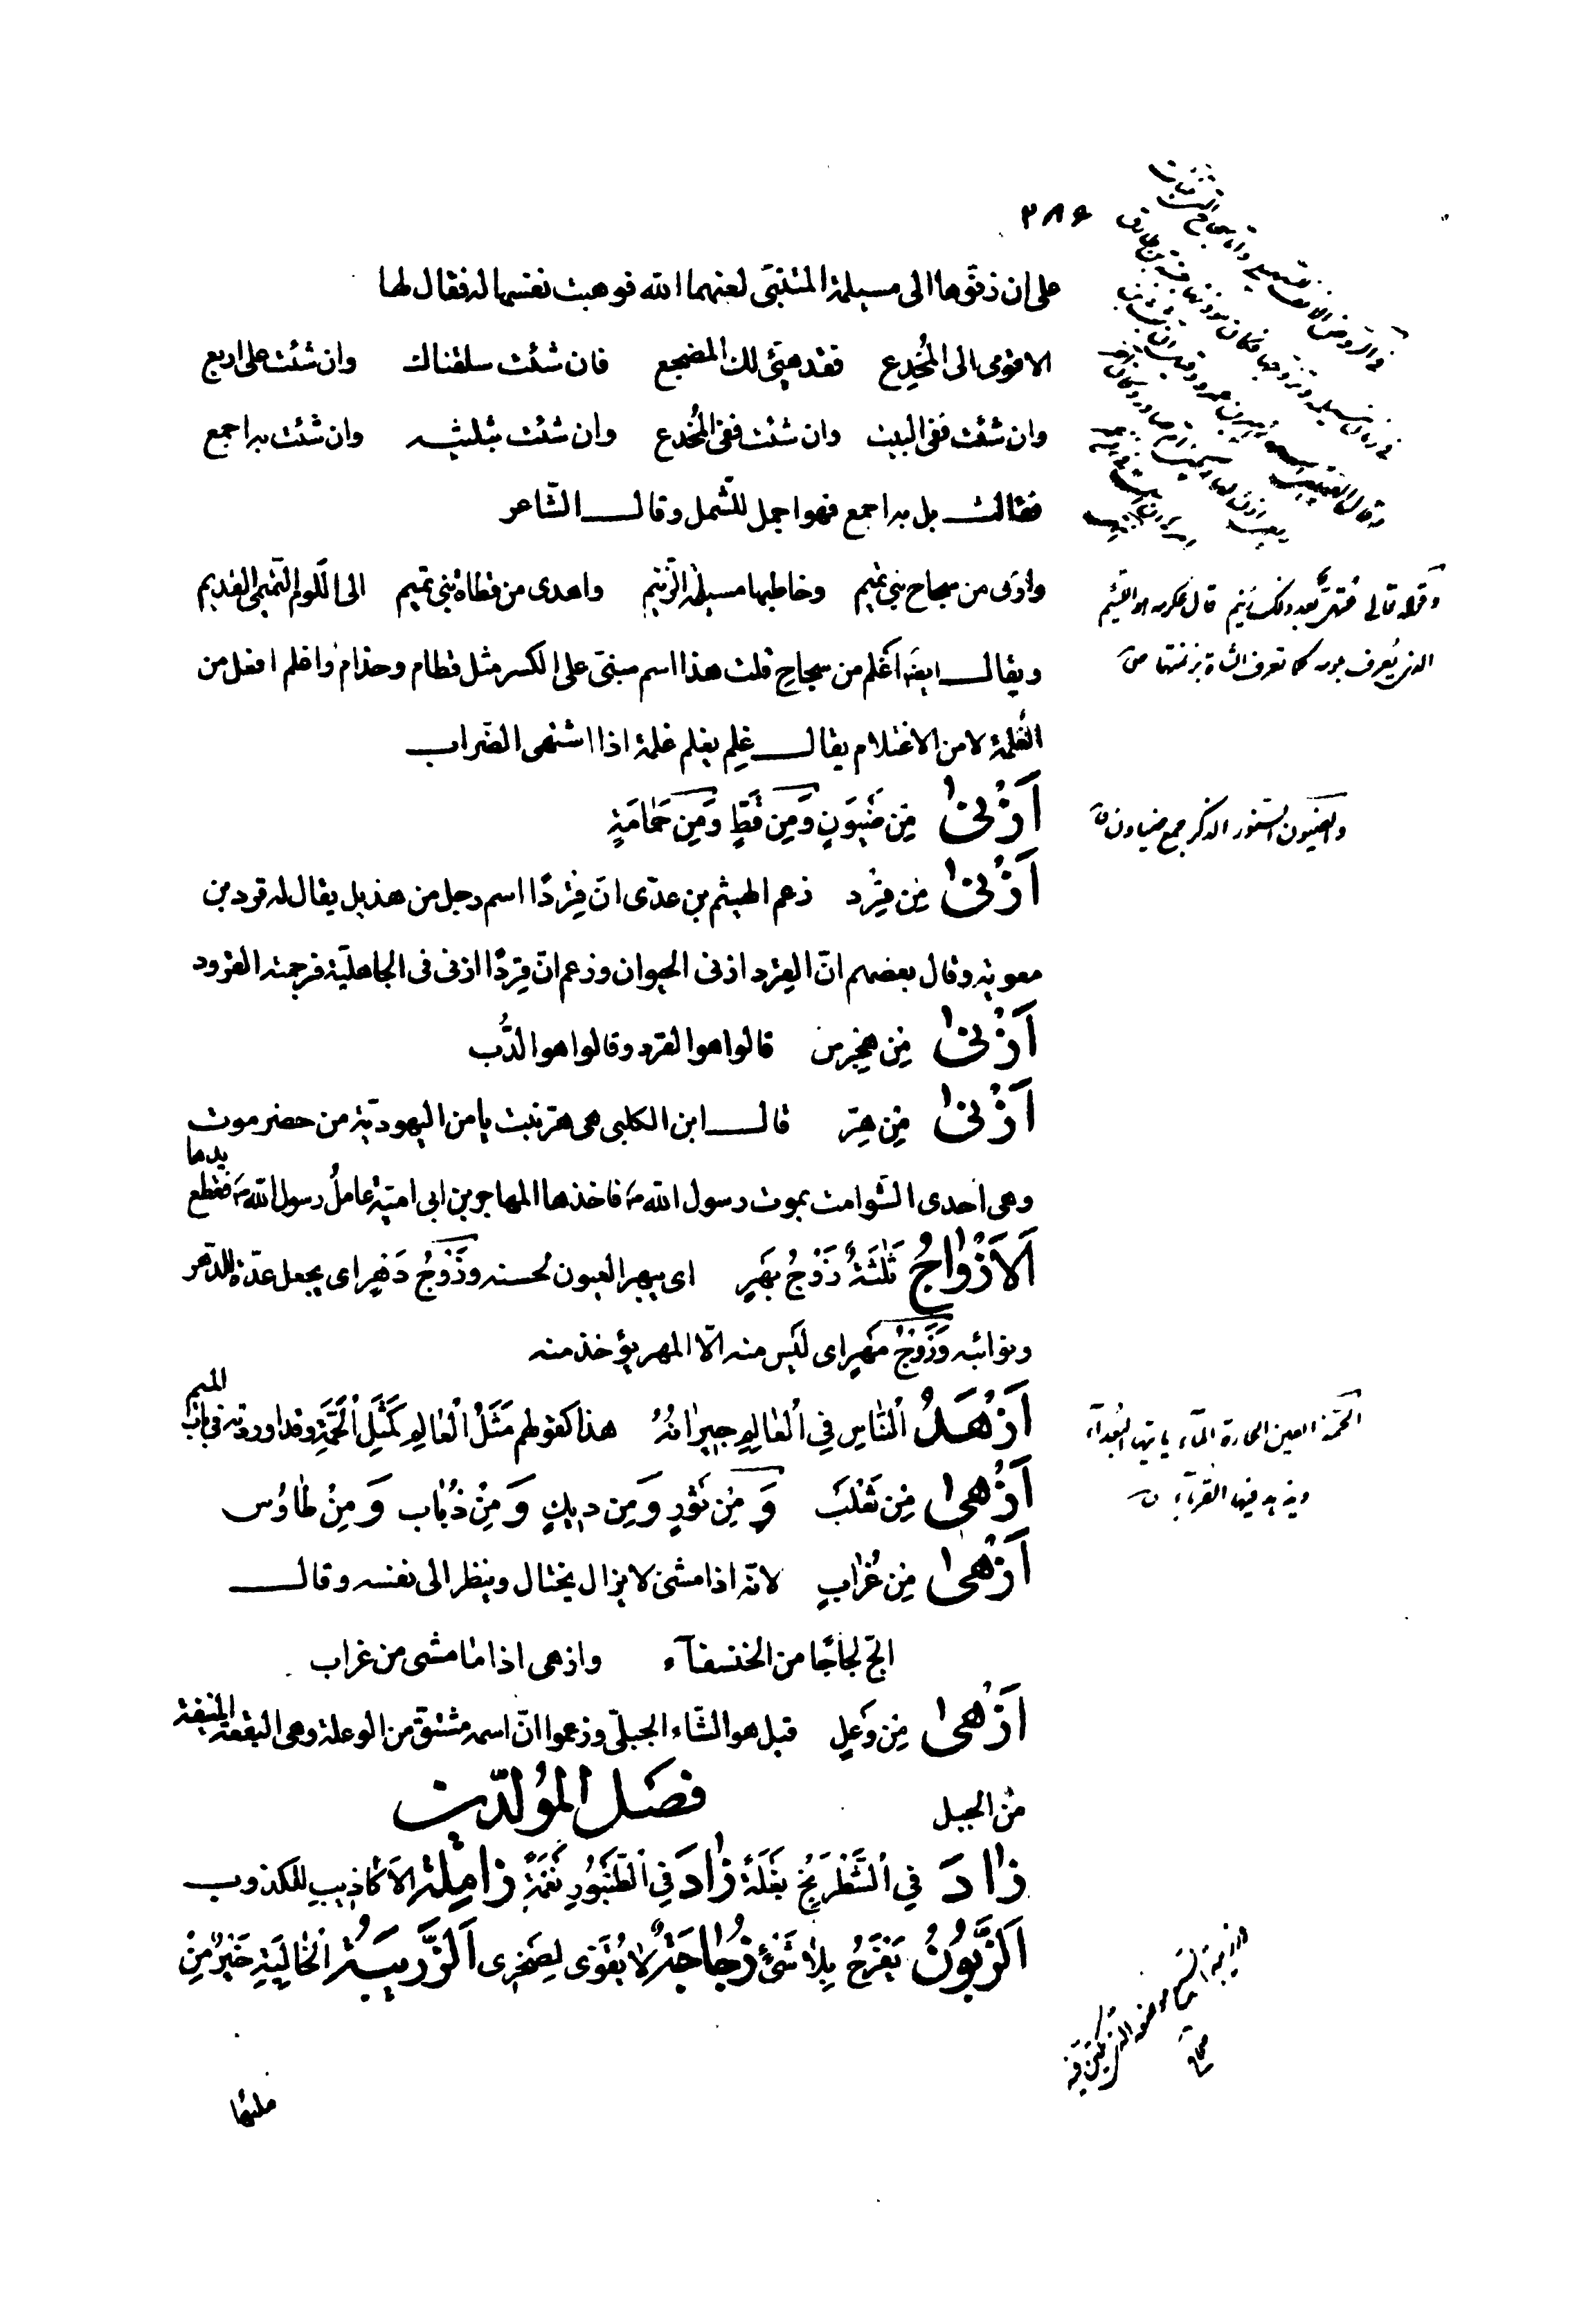 ٢٨۶
على ان زفّوها الى مسيلمة المتنبّى لعنهما الله فوهبت نفسها له فقال لها
الا قومى الى المُخدع فقد هيّئ لك المضجع فان شئت سلقناك وان شئت على اربع
وان شئت ففى البيت وان شئت ففى المُخدع وان شئت بثلثيه وان شئت به اجمع
فقالت بل به اجمع فهو اجمل للشّمل وقال الشّاعر
وازنى من سجاح بنى تميم وخاطبها مسيلمة الزّنيم واهدى من قطاة بنى تميم الى اللّوم التّميمى القديم
ويقال ايضًا اَغلم من سجاحِ قلت هذا اسم مبنىّ على الكسر مثل قطام وحذام واغلم افعل من
الغُلمة لا من الاغتلام يقال غلِم يغلم غلمة اذا اشتهى الضّراب
اَزْنىٰ مِن ضَيْوَنٍ وَمِن قِطٍّ وَمِن حَمَامَةٍ
اَزْنىٰ مِن قِرْد زعم الهيثم بن عدىّ انّ قِرْدًا اسم رجل من هذيل يقال له قرد بن
معوية وقال بعضهم انّ القرد ازنى الحيوان وزعم انّ قِردًا زنى فى الجاهليّة فرجمته القرود
اَزْنىٰ مِن هِجْرِس قالوا هو القرد وقالوا هو الدُّب
اَزْنىٰ مِن هِرّ قال ابن الكلبى هى هرّ بنت يامن اليهوديّة من حضرموت
وهى احدى الشّوامت بموت رسول الله ص فاخذها المهاجر بن ابى اميّة عامل رسول الله ص فقطع يدها
اَلاَزْوٰاجُ ثَلٰثَةٌ زَوْجُ بَهْرٍ اى يبهر العيون لحسنه وَزَوْجُ دَهْرٍ اى يجعل عدّة للدّهر
ونوائبه وَزَوْجُ مَهْرٍ اى ليس منه الّا المهر يؤخذ منه
اَزْهَدُ اَلنّٰاسِ فِي اَلْعٰالِمِ جيرٰانُهُ هذا كقولهم مَثَلُ اَلْعٰالِمِ كَمَثَلِ اَلْحَمَّةِ وقد اوردته فى باب الميم
اَزْهىٰ مِن ثَعْلَبَ وَمِن ثَوْرٍ وَمِن ديكٍ وَمِنْ ذُبٰاب وَمِنْ طٰاوُس
اَزْهىٰ مِن غُرٰابٍ لانّه اذا مشى لا يزال يختال وينظر الى نفسه وقال
الجّ لجاجًا من الخنفسآء وازهى اذا مٰا مشى من غراب
اَزْهىٰ مِن وَعِلٍ قيل هو الشّاء الجبلىّ وزعموا انّ اسمه مشتقّ من الوعلة وهى البقعة المنيفة
من الجبل فصَل المُولّدين
زٰادَ فِي اَلشَّطْرَنْجِ بَغْلَةً زٰادَ فِي اَلطُّنْبُورِ نَغْمَةً زامِلة الاَكاذيبِ للكذوب
اَلزَّبُونُ يَفْرَحُ بِلاٰ شَئٍ زُجٰاجَةٌ لاٰ يَقْوَى لِصَخْرى اَلزَّريبَةُ اَلْخٰالِيَةِ خَيْرٌ مِنْ
ملئها
وقوله تعالى عُتُلٍّ بعد ذلك زنيم قال عكرمه هو اللئيم
الذى يُعرف بلومه كما تعرف الشاة بزنمتها ص
والضيون السّنّور الذكر جمع ضياون ص
الحَمّة العين الحارة المآء ياتيها البُعدآء
ويزهد فيها القربآء ص